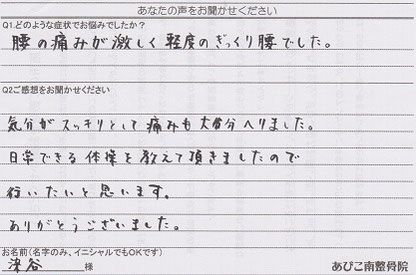 あなたの声をお聞かせください
Q1.どのような症状でお悩みでしたか？
腰の痛みが激しく軽度のぎっくり腰でした。
Q2ご感想をお聞かせください
気分がスッキリとして痛みも大部分へりました。
日常できる体操を教えて頂きましたので
行いたいと思います。
ありがとうございました。
お名前(名字のみ、イニシャルでもOKです)
深谷 様 あびこ南整骨院